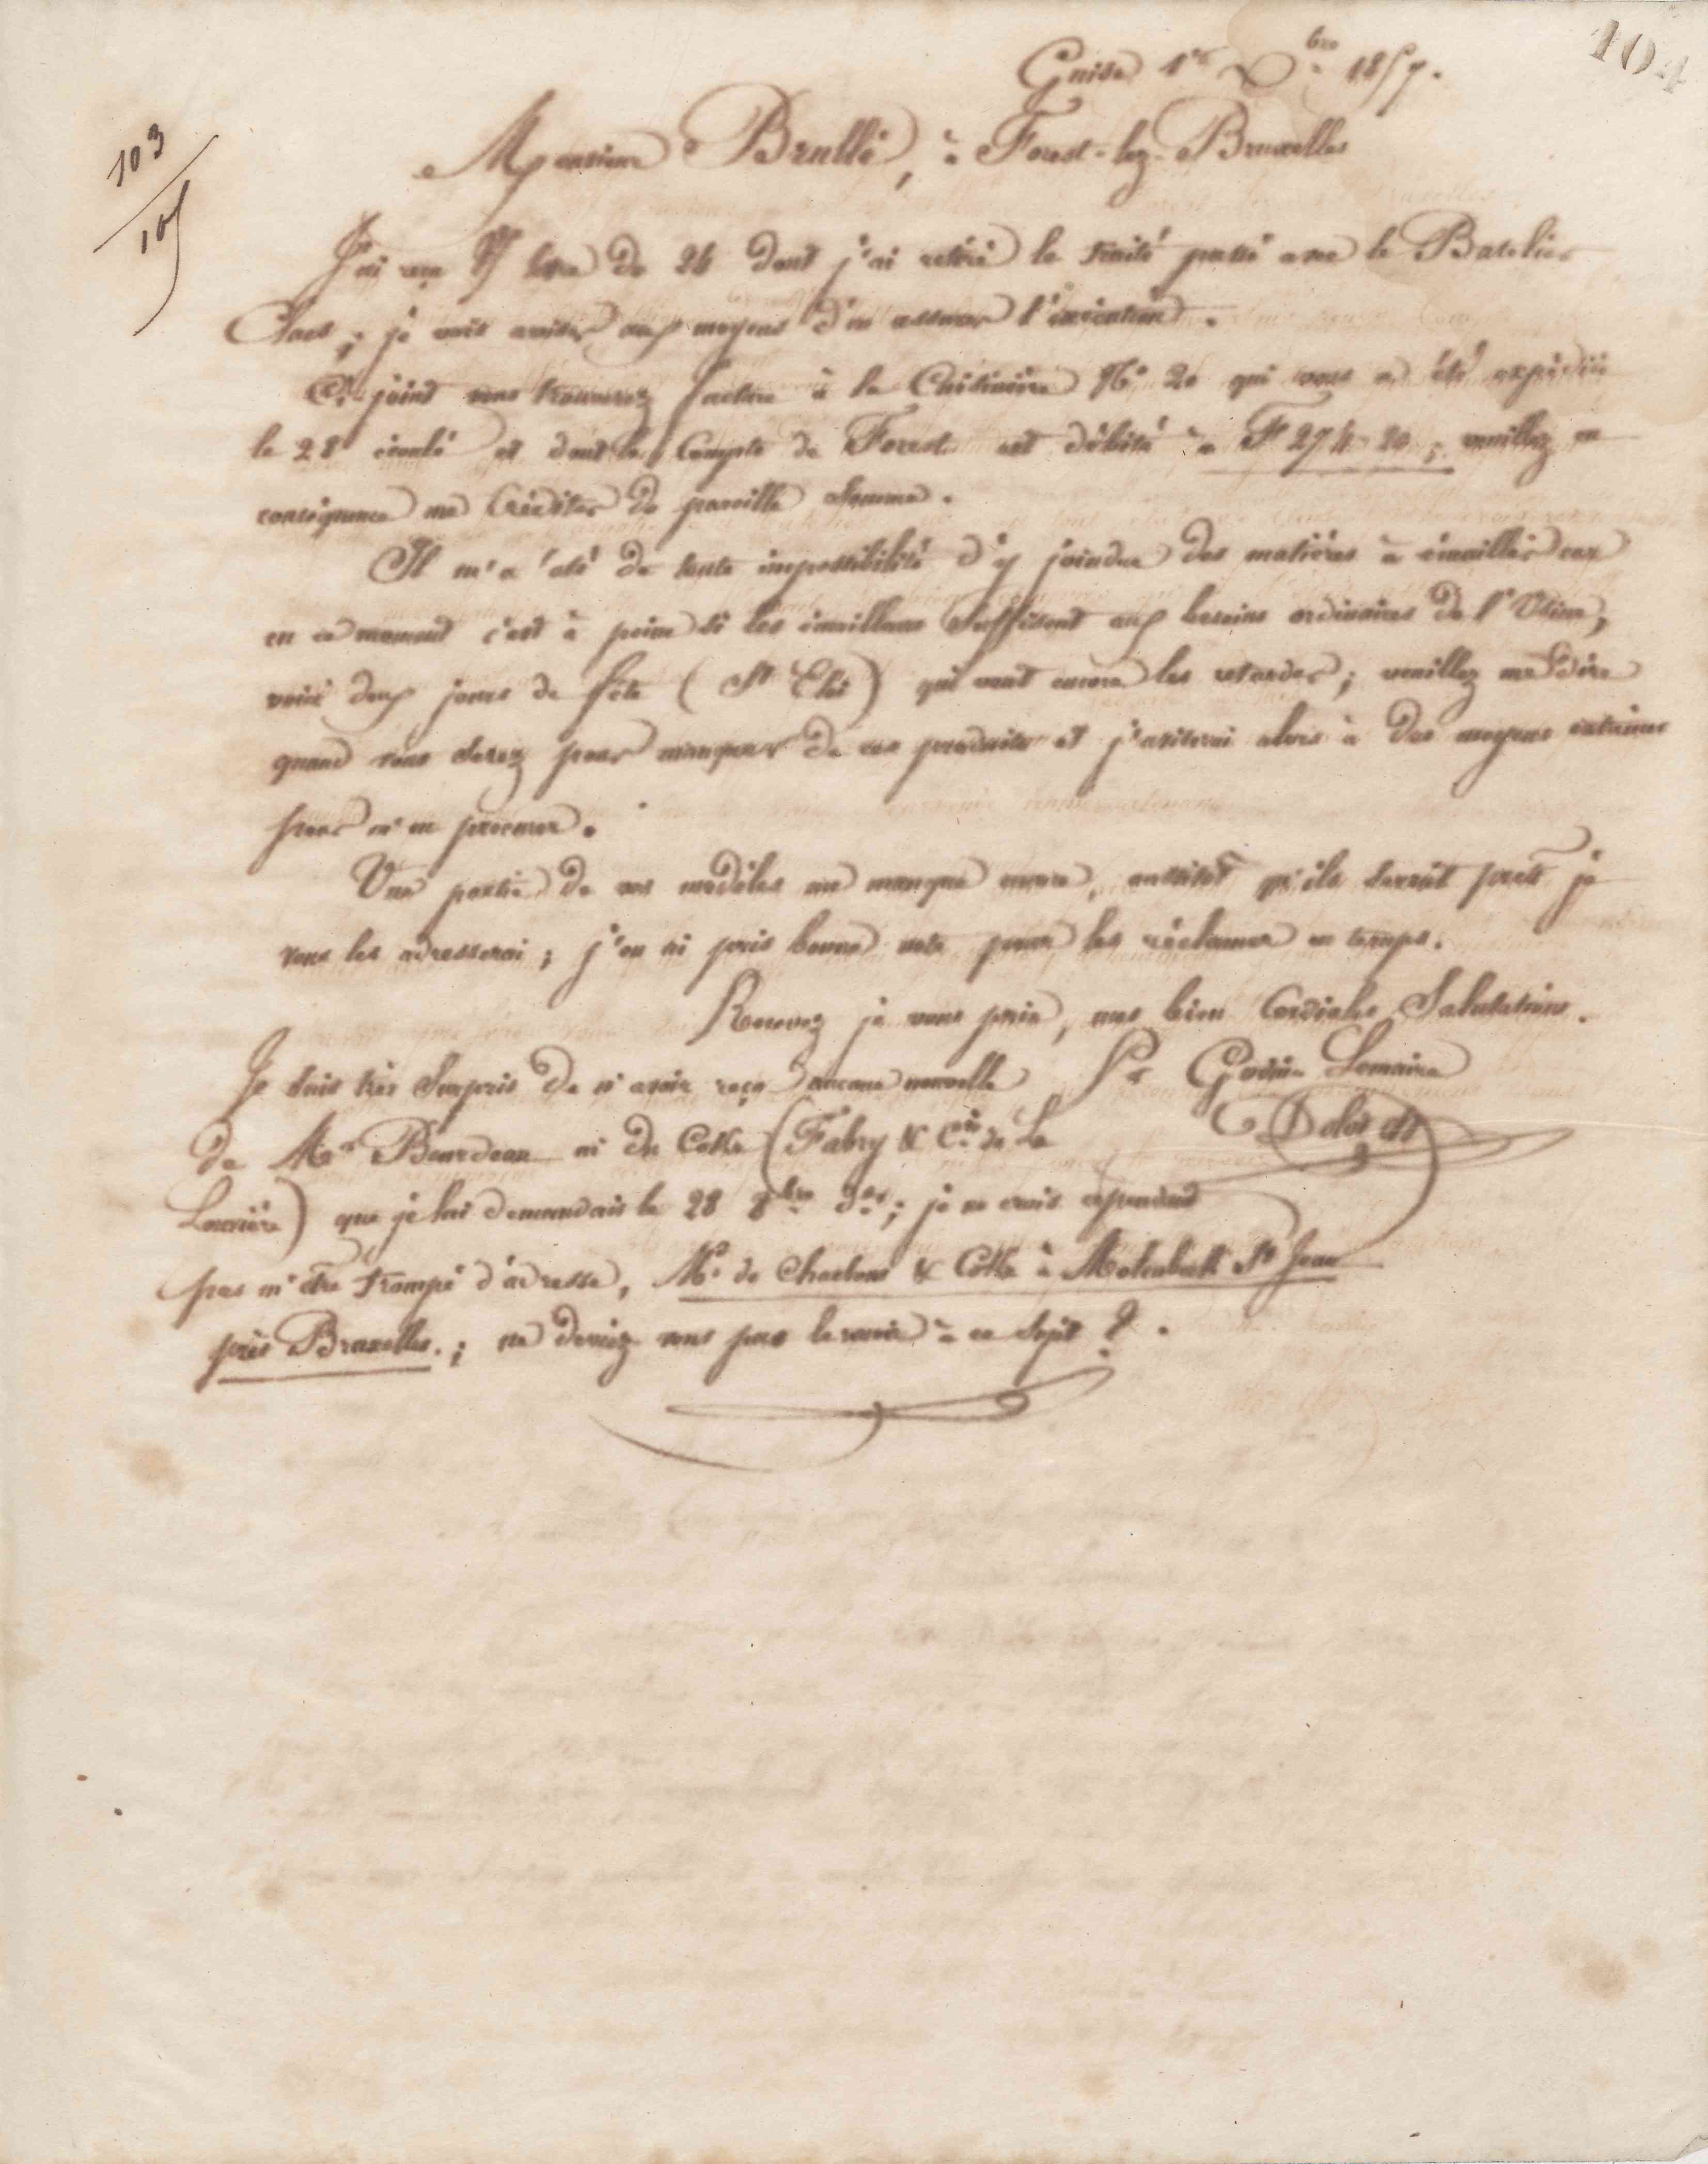 104
103
105
Guise 1er Xbre 1857.
Monsieur Brullé, à Forest-lez-Bruxelles
J'ai reçu Vf lettre de 24 dont j'ai retiré le traité passé avec le Batelier
Claes ; je vais aviser aux moyens d'en assurer l'exécution.
Ci-joint vous trouverez facture à la Cuisinière No 20 qui vous a été expédiée
le 28 écoulé et dont le Compte de Forest est débité à F 274-20 ; veuillez en
conséquence me Créditer de pareille Somme.
Il m'a été de toute impossibilité d'y joindre des matières à émailler car
en ce moment c'est à peine si les émailleurs suffisent aux besoins ordinaires de l'Usine,
voici deux jours de fête (St Eloi) qui vont encore les retarder ; veuillez me dire
quand vous serez pour manquer de ces produits et j'aviserai alors à des moyens extrêmes
pour m'en procurer.
Une partie de vos modèles me manque encore, aussitôt qu'ils seront prêts je
vous les adresserai ; j'en ai pris bonne note pour les réclamer en temps.
Recevez je vous prie, mes bien Cordiales Salutations.
Je suis très Surpris de n'avoir reçu aucune nouvelle
Pr Godin-Lemaire
de Mr Bourdeau ni du Coke (Fabry & Cie de La
Louvière) que je lui demandais le 28 8bre der ; je ne crois cependant
pas m'être trompé d'adresse, Mr de Charbons & Coke à Molenbeek St Jean
près Bruxelles. ; ne deviez vous pas le voir à ce Sujet ?.